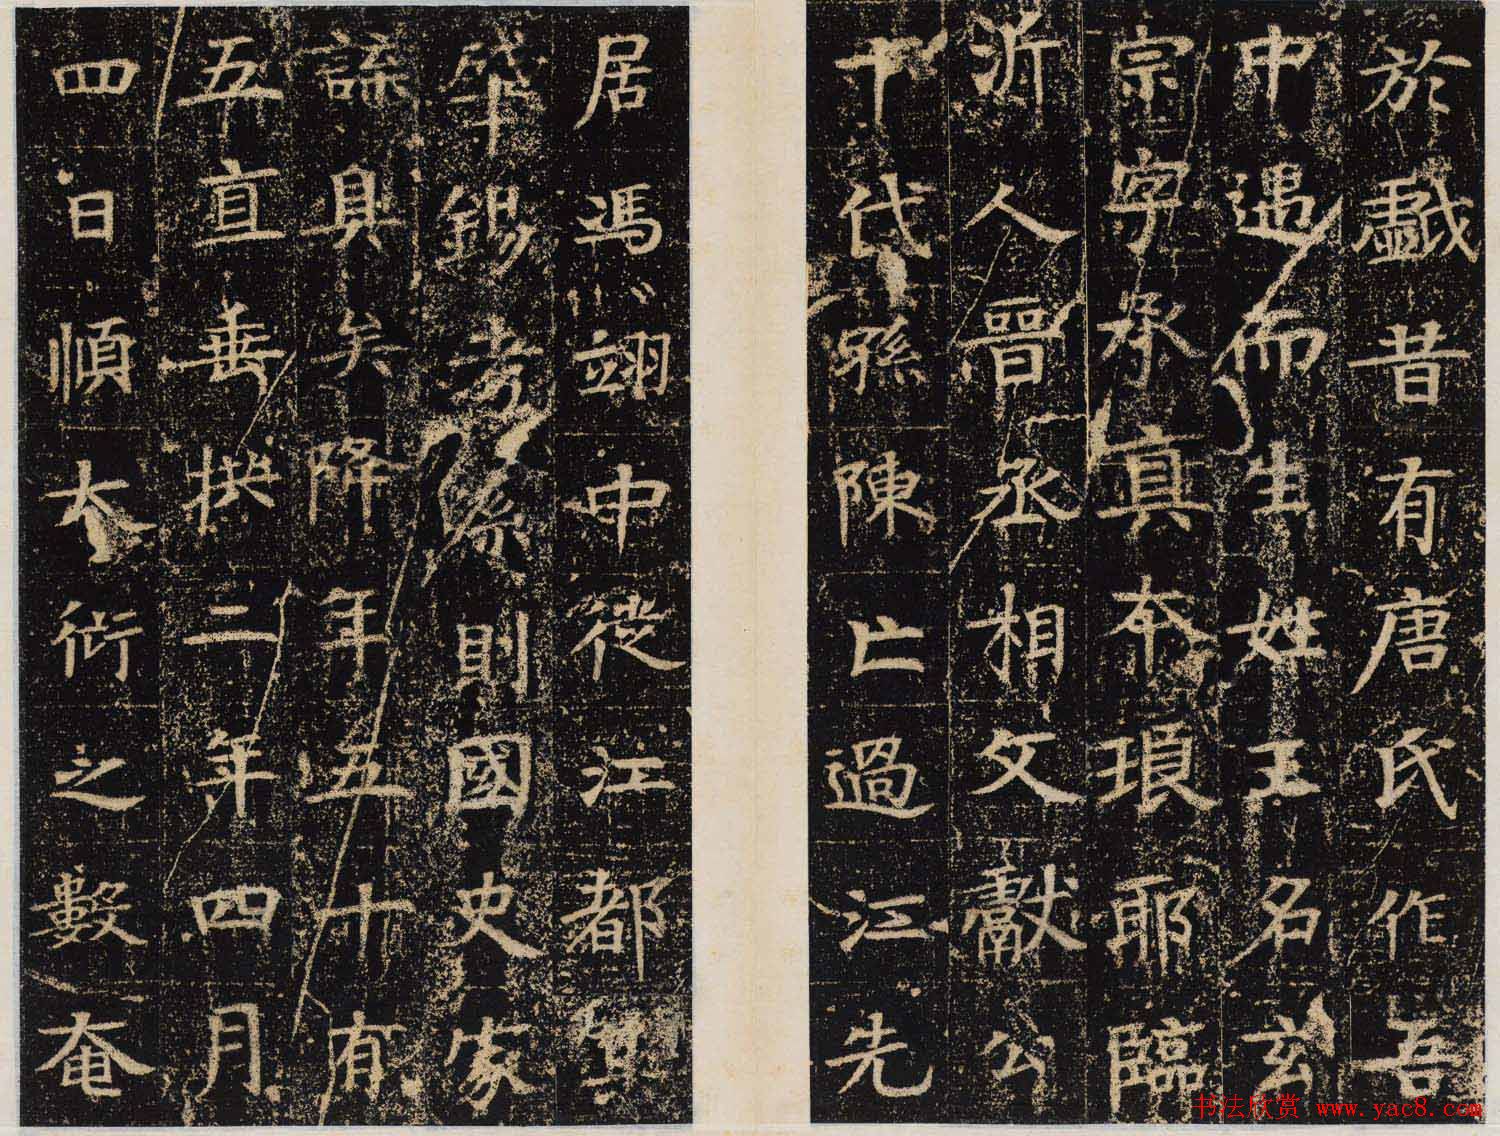 於戲昔有唐氏作吾
中遇而生姓王名玄
宗字承真本琅耶臨
沂人晉丞相文獻公
十代孫陳亡過江先
居馮翊中徙江都其
肇錫考系則國史家
諜具矣降年五十有
五直垂拱二年四月
四日順大衍之數奄
书法欣赏 www.yac8.com